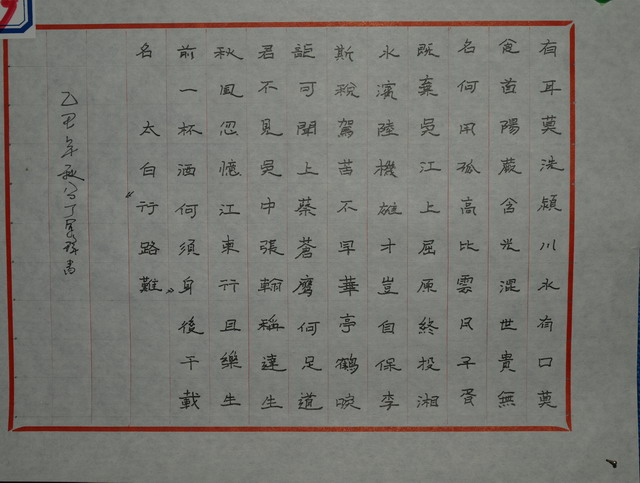 有耳莫洗潁川水有口莫
食首陽蕨含光混世貴無
名何用孤高比雲月子胥
既棄吳江上屈原終投湘
水濱陸機雄才豈自保李
斯稅駕苦不早華亭鶴唳
詎可聞上蔡蒼鷹何足道
君不見吳中張翰稱達生
秋風忽憶江東行且樂生
前一杯酒何須身後千載
名 太白“行路難”
乙丑年秋 丁 書